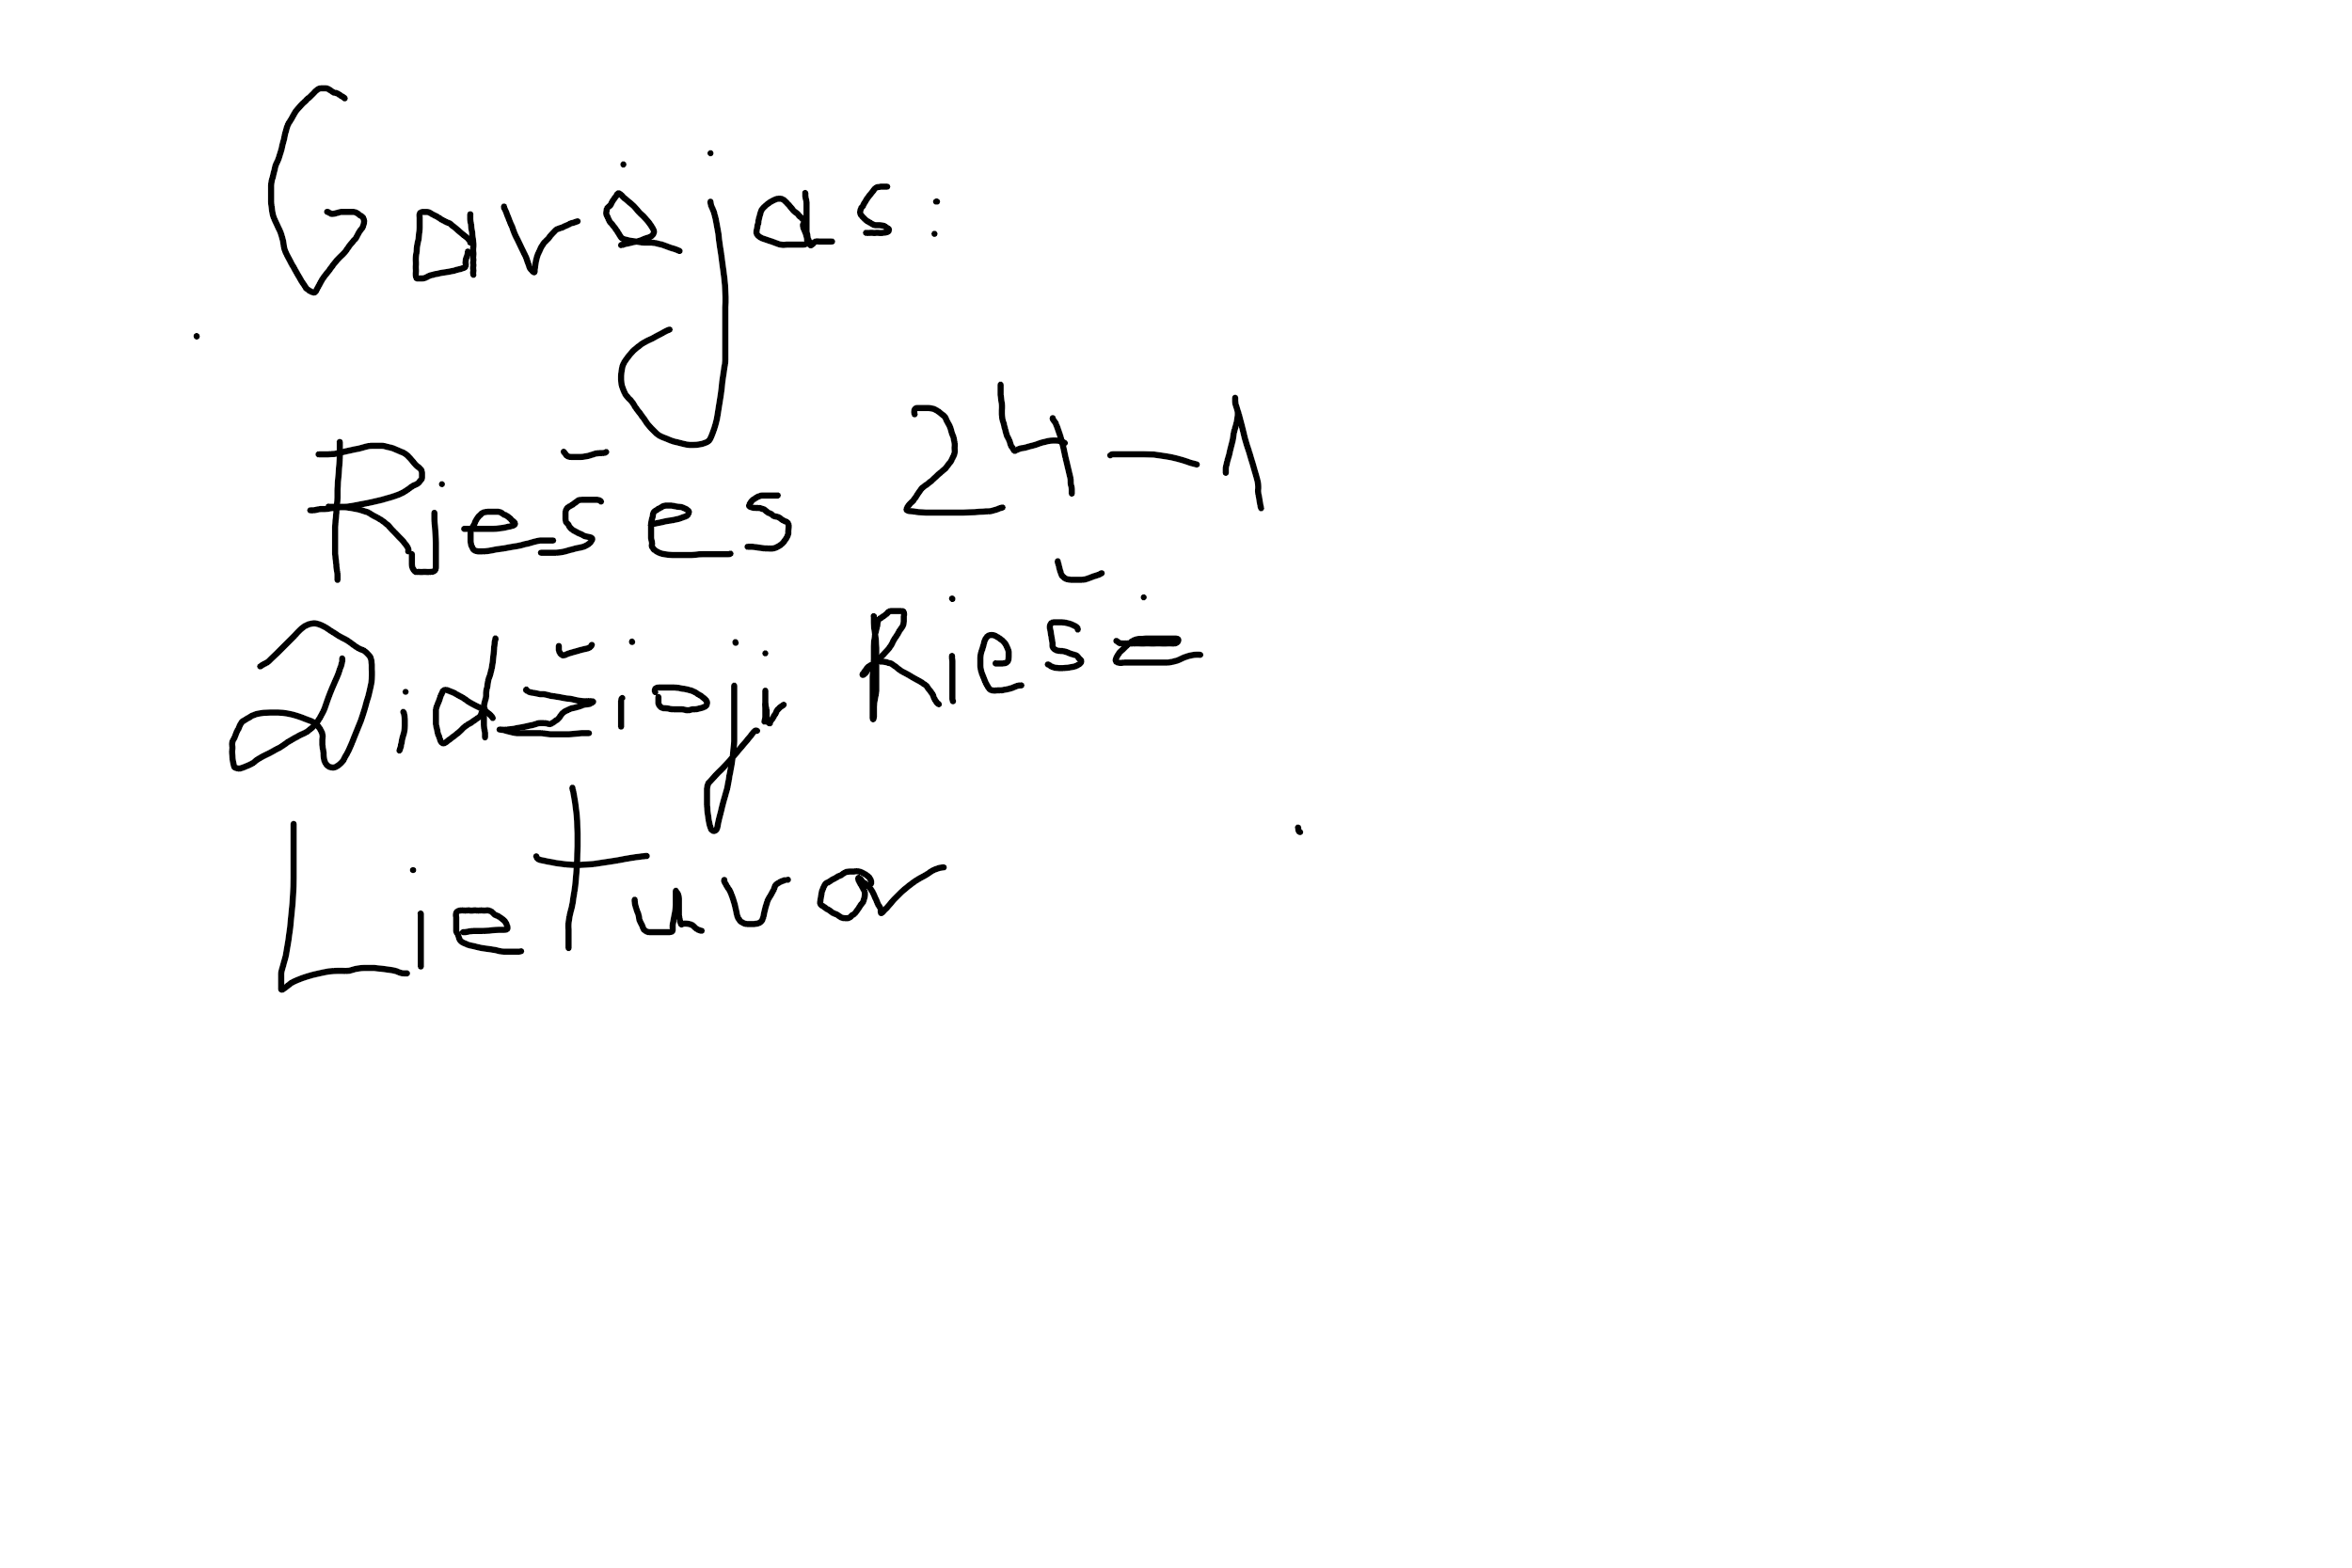 Gavėjas:
Riešės 24-1
Didžioji Riešė
Lietuva